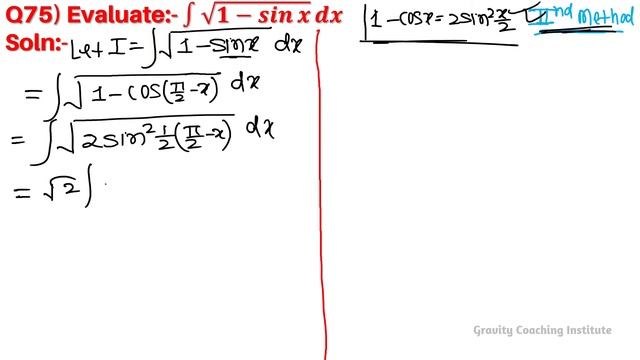 Q75) Evaluate:- ∫ √1 − sin x dx
Soln:- Let I = ∫ √1 - sinx dx
= ∫ √1 - cos(π/2 - x) dx
= ∫ √2sin² 1/2 (π/2 - x) dx
= √2 ∫
1 - cosx = 2sin² x/2
IInd Method
Gravity Coaching Institute